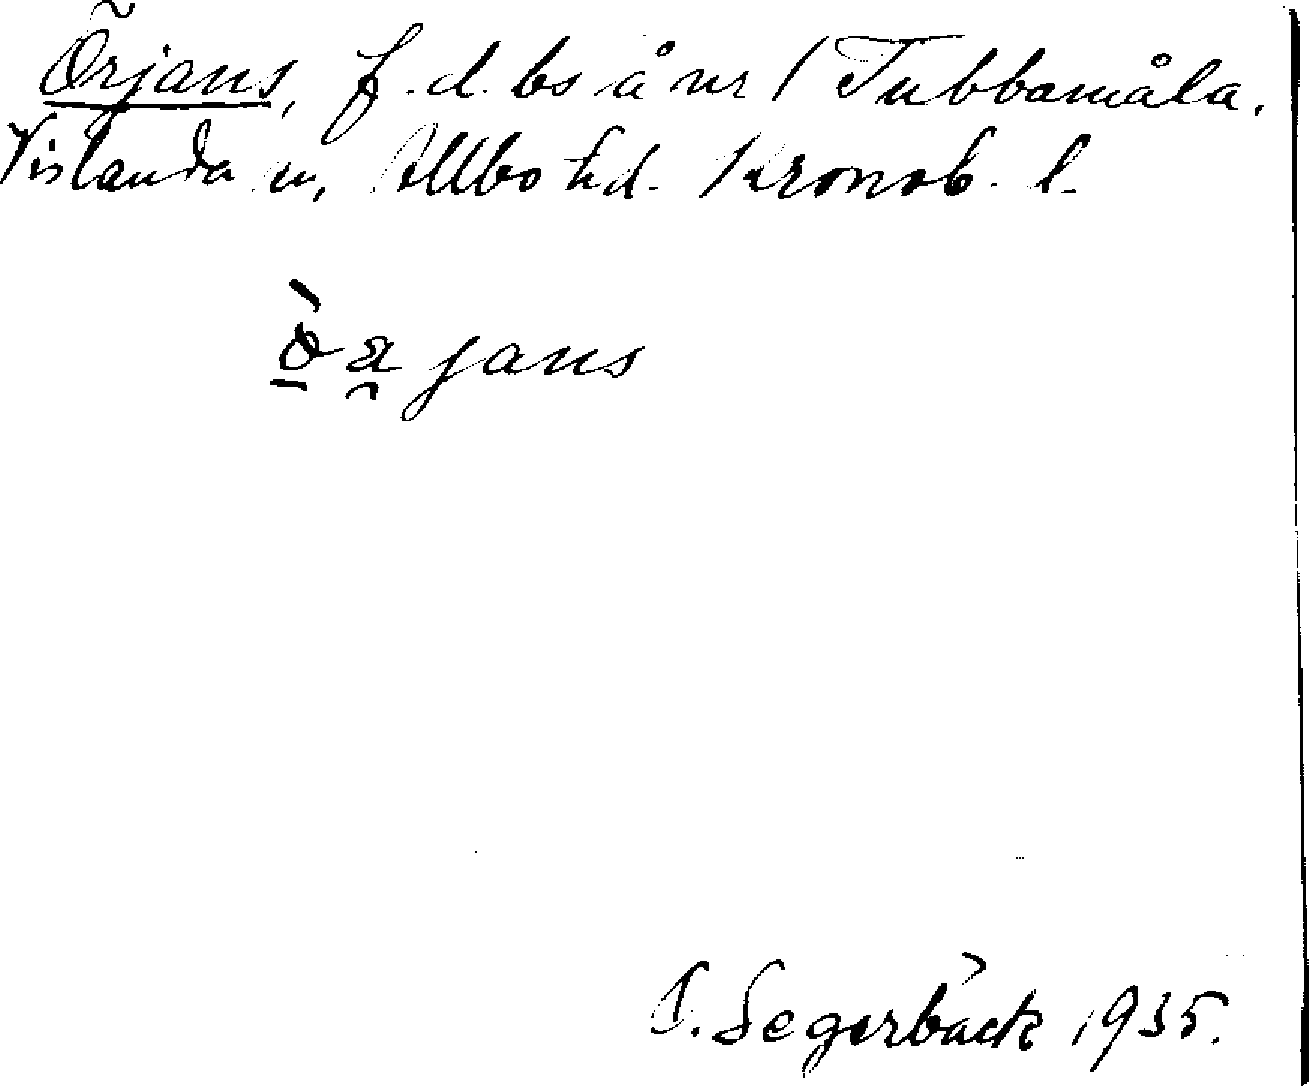 Örjans, f.d. bs å nr 1 Tubbamåla.
Vislanda sn, Allbo hd. Kronob. l.
jans
Segerbäck 1935.